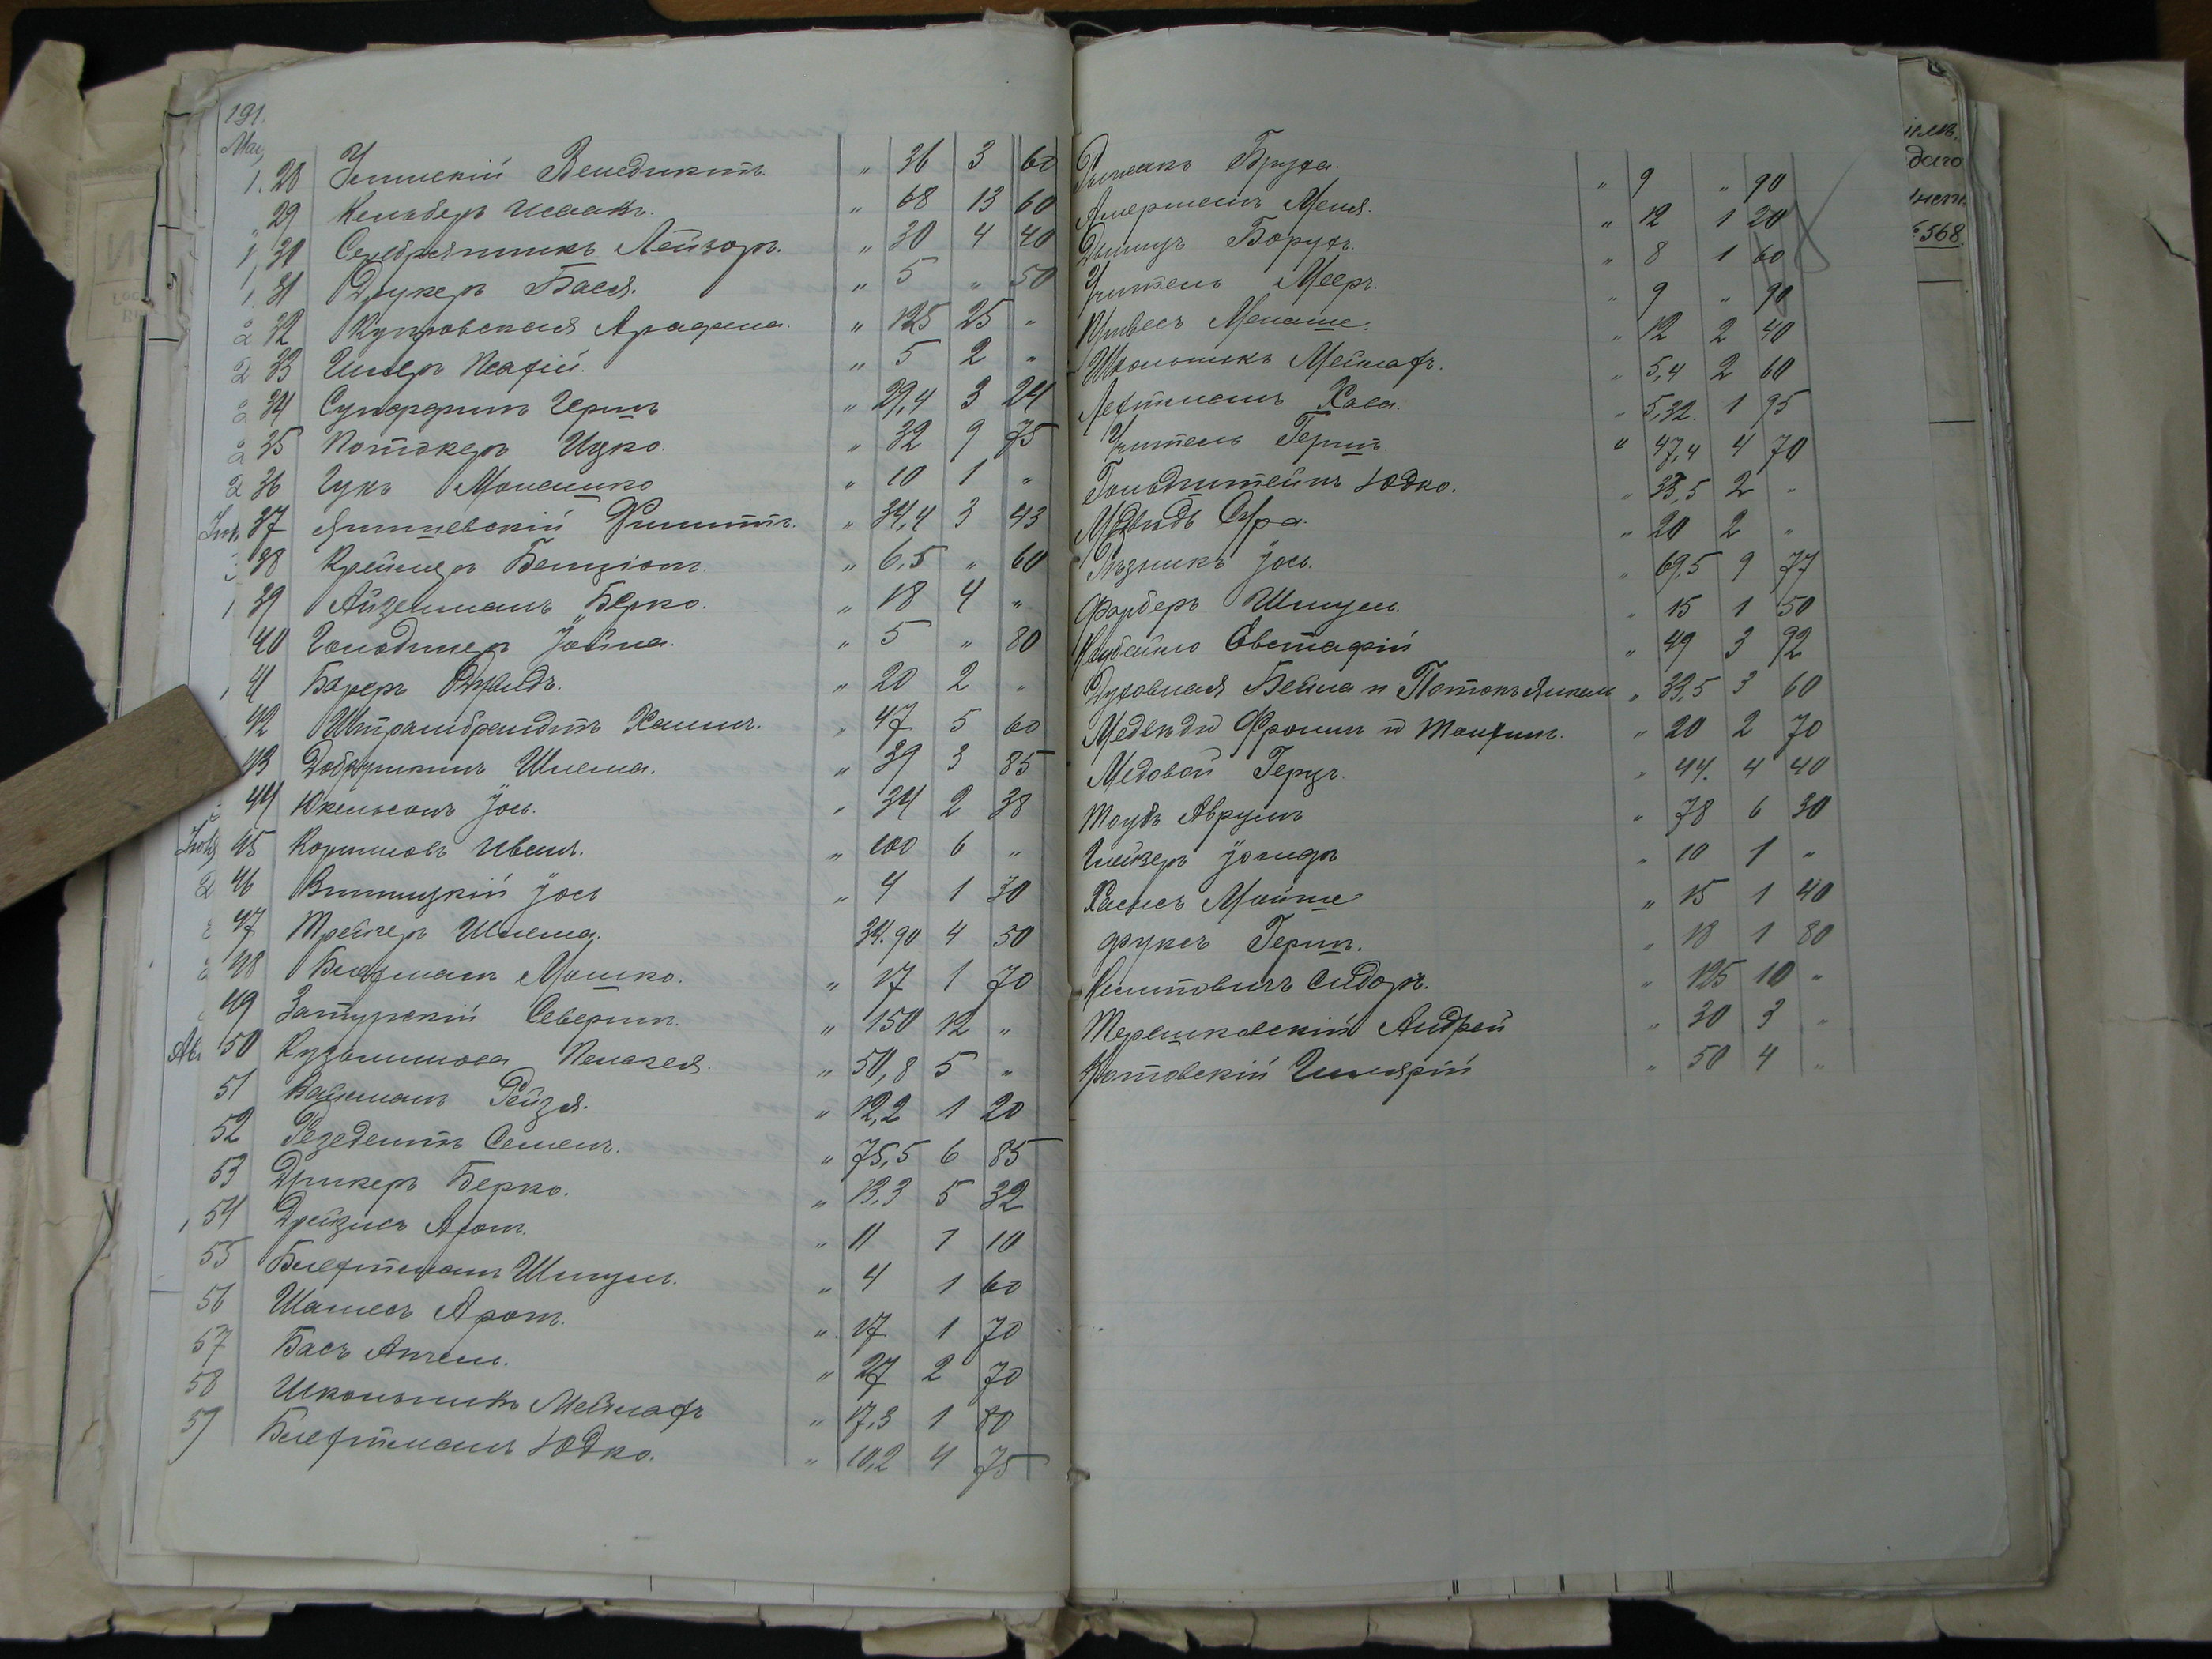 191
Май
28 Устискій Венедиктъ. " 36 3 60
29 Кельберъ Исаакъ. " 68 13 60
30 Серебрянникъ Лейзоръ. " 30 4 40
31 Друкеръ Бася. " 5 " 50
32 Купровская Аграфена. " 125 25 "
33 " 5 2 "
34 Гершъ " 29,4 3 24
35 Потокеръ Ицко. " 32 9 75
36 Гукъ Монашко " 10 1 "
37 Яшишевскій Филиппъ. " 34,4 3 43
38 Креймеръ Бенціонъ. " 6,5 " 60
39 Айзенманъ Берко. " 18 4 "
40 Голодنеръ Іойна. " 5 " 80
41 Бареръ " 20 2 "
42 Штрамбрандтъ Хаимъ. " 47 5 60
43 Добрушкинъ Шлема. " 39 3 85
44 Юкельсонъ Іось. " 34 2 38
45 Корниловъ Иванъ. " 100 6 "
46 Винницкій Іось " 4 1 30
47 Трейгеръ Шлема. 34.90 4 50
48 Блехманъ Мошко. " 17 1 70
49 Затурскій Северинъ. " 150 12 "
50 Кузьминова Пелагея. " 50,8 5 "
51 Вайсманъ Рейзя. " 12,2 1 20
52 Резедентъ Семенъ. " 75,5 6 85
53 Дрикеръ Берко. " 13,3 5 32
54 Дрейзисъ Аронъ. " 11 1 10
55 Блехтманъ Шмуль. " 4 1 60
56 Шамесъ Аронъ. " 17 1 70
57 Басъ Анчель. " 27 2 70
58 Школьникъ Мейлахъ " 17,3 1 80
59 Блехтманъ Юдко. " 10,2 4 75
Рыжакъ Бруха. " 9 " 90
Амерманъ Меня. " 12 1 20
Дымуръ Борухъ. " 8 1 60
Учитель Мееръ. " 9 " 90
Кривесъ Менаше. " 12 2 40
Школьникъ Мейлахъ. " 5,4 2 60
Лехтманъ Хава. " 5,32. 1 95
Учитель Гершъ. " 47,4 4 70
Гольдштейнъ Юдко. " 33,5 2 "
Медвѣдь Сура. " 20 2 "
Рѣзникъ Іось. " 69,5 9 77
Фарберъ Шмуль. " 15 1 50
Кульбайко Евстафій " 49 3 92
Духовная Бейла и Потокъ Янкель " 33,5 3 60
Медвѣди Фроимъ и Танхимъ. " 20 2 70
Медовой Герцъ. " 44. 4 40
Таубъ Аврумъ " 78 6 30
Глейзеръ " 10 1 "
Хасисъ Мойше " 15 1 40
Фуксъ Гершъ. " 18 1 80
Сидоръ. " 125 10 "
Терешковскій Андрей " 30 3 "
Котовскій " 50 4 "
568